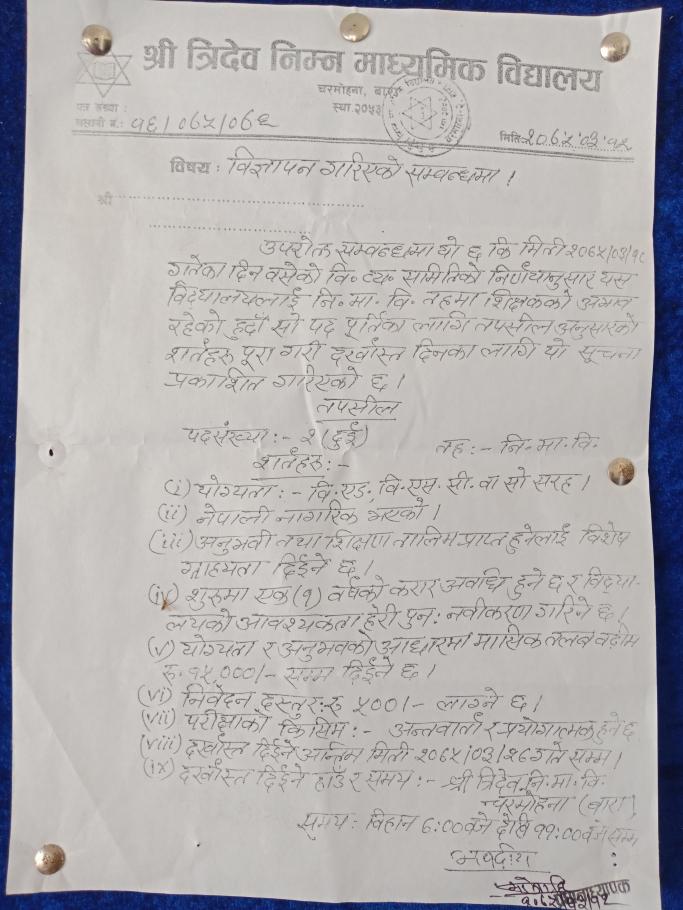 श्री त्रिदेव निम्न माध्यमिक विद्यालय
चरमोहना, बारा
स्था २०५३
पत्र संख्या :
चलानी नं.: १६/०६५/०६६
मिति:२०६५/०३/१५
विषय: विज्ञापन गरिएको सम्वन्धमा ।
श्री
उपरोक्त सम्वन्धमा यो छ कि मिती २०६५/०३/१८
गतेका दिन वसेको वि॰ व्य॰ समितिको निर्णयानुसार यस
विद्यालयलाई नि॰ मा॰ वि॰ तहमा शिक्षकको अभाव
रहेको हुदाँ सो पद पूर्तिका लागि तपसील अनुसारको
शर्तहरू पूरा गरी दर्खास्त दिनका लागि यो सूचना
प्रकाशित गरिएको छ ।
तपसील
पदसंख्या :- २ (दुई)
तह :- नि॰ मा॰ वि॰
शर्तहरू :-
(i) योग्यता :- वि॰ एड॰ वि॰ एस॰ सी॰ वा सो सरह ।
(ii) नेपाली नागरिक भएको ।
(iii) अनुभवी तथा शिक्षण तालिम प्राप्त हुनेलाई विशेष
ग्राह्यता दिईने छ ।
(iv) शुरूमा एक (१) वर्षको करार अवधि हुने छ र विद्या-
लयको आवश्यकता हेरी पुन: नवीकरण गरिने छ ।
(v) योग्यता र अनुभवको आधारमा मासिक तलब बढीमा
रु॰ १५,०००/- सम्म दिईने छ ।
(vi) निवेदन दस्तुर: रु ५००/- लाग्ने छ ।
(vii) परीक्षाको किसिम :- अन्तवार्ता र प्रयोगात्मक हुने छ
(viii) दर्खास्त दिईने अन्तिम मिती २०६५/०३/२६ गते सम्म ।
(ix) दर्खास्त दिईने ठाउँ र समय :- श्री त्रिदेव नि॰ मा॰ वि॰
चरमोहना (बारा)
समय : विहान 6:00 बजे देखि ११:०० बजे सम्म
भवदीय
प्रधानाध्यापक